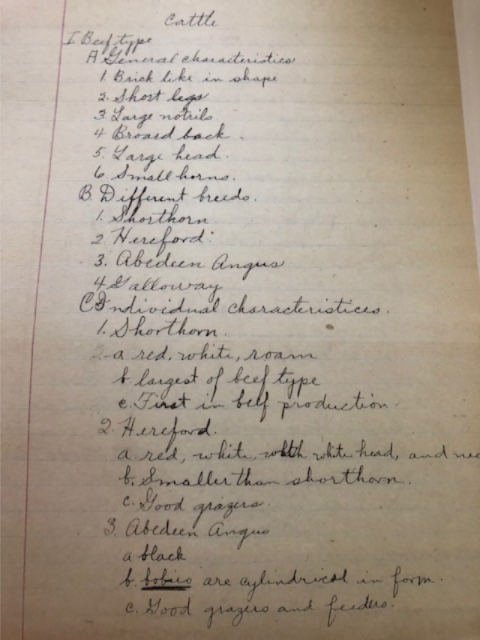 Cattle
I. Beef type
A General characteristics
1. Brick like in shape
2. Short legs
3. Large notrils
4 Broard back.
5. Large head.
6. Small horns.
B. Different breeds.
1. Shorthorn
2 Hereford.
3. Abedeen Angus
4 Galloway
C Individual characteristices.
1. Shorthorn.
a red, white, roam
b largest of beef type
c. First in beef production.
2 Hereford.
a red, white, with white head, and
b. Smaller than shorthorn.
c. Good grazers.
3. Abedeen Angus
a black
b. are cylindrical in form.
c. Good grazers and feeders.